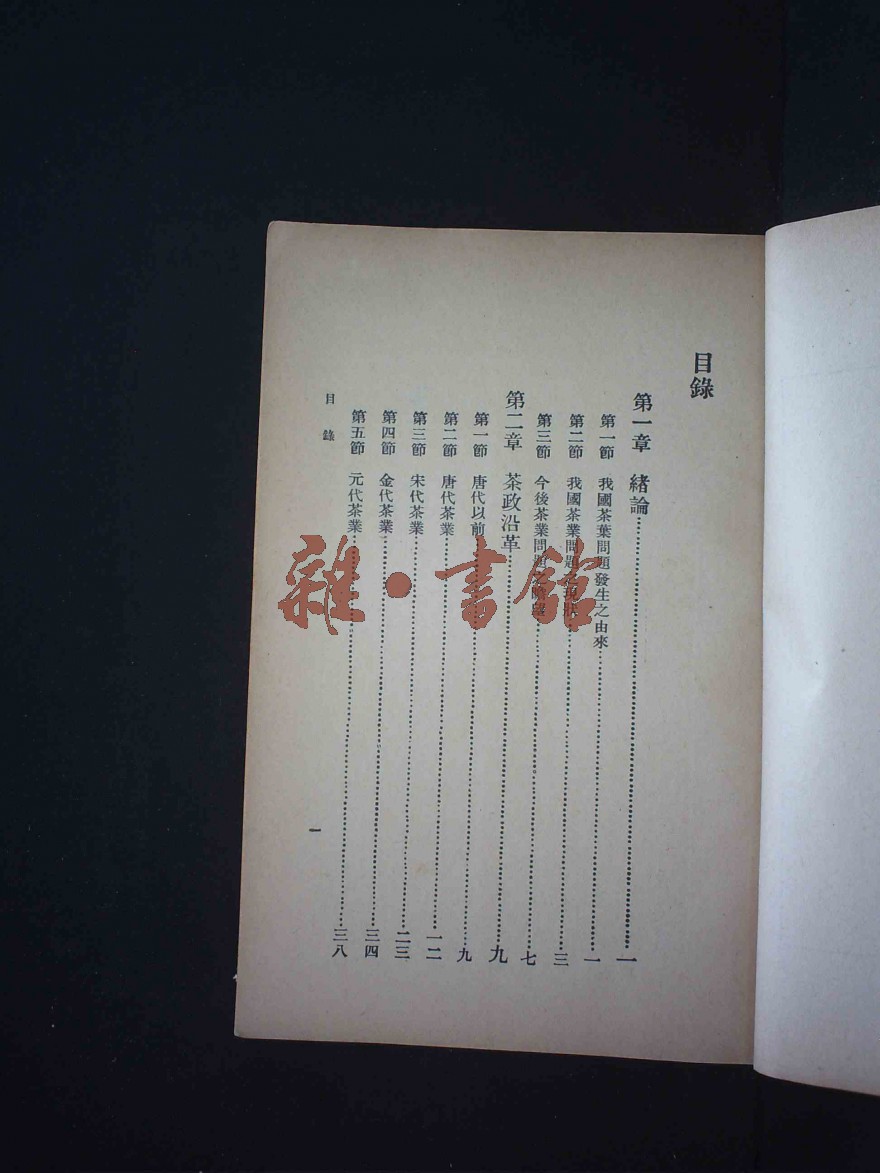 目錄
第一章 緒論……一
第一節 我國茶葉問題發生之由來……一
第二節 我國茶業問題之現狀……三
第三節 今後茶業問題之瞻望……七
第二章 茶政沿革……九
第一節 唐代以前……九
第二節 唐代茶業……一二
第三節 宋代茶業……二三
第四節 金代茶業……三四
第五節 元代茶業……三八
目錄
一
雜·書館